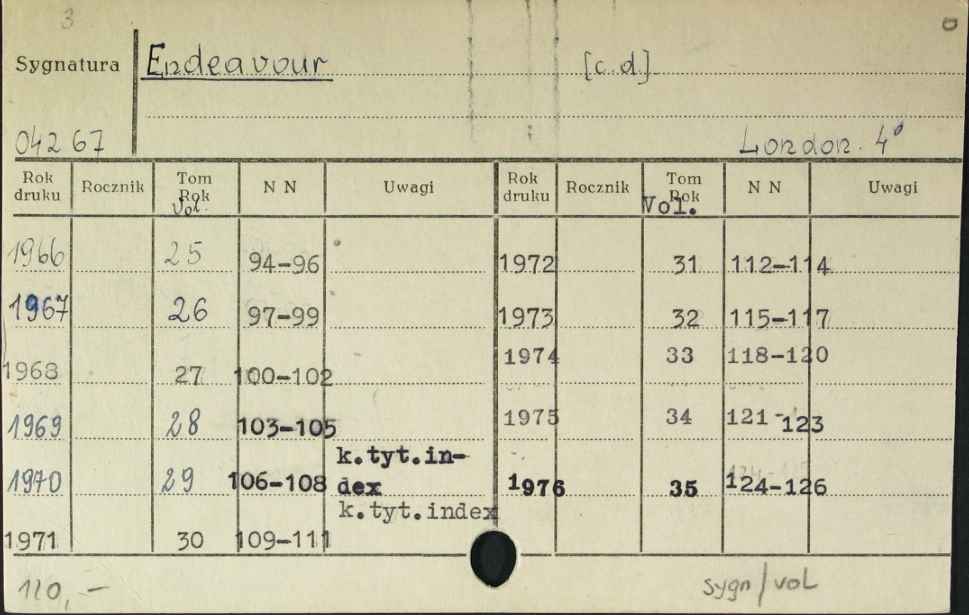 3
Sygnatura Endeavour [c.d.]
042 67 London. 4°
Rok druku Rocznik Tom Rok Vol. N N Uwagi Rok druku Rocznik Tom Rok Vol. N N Uwagi
1966 25 94-96 1972 31 112-114
1967 26 97-99 1973 32 115-117
1968 27 100-102 1974 33 118-120
1969 28 103-105 1975 34 121-123
1970 29 106-108 k.tyt.in-dex 1976 35 124-126
1971 30 109-111 k.tyt.index
110,- sygn/vol